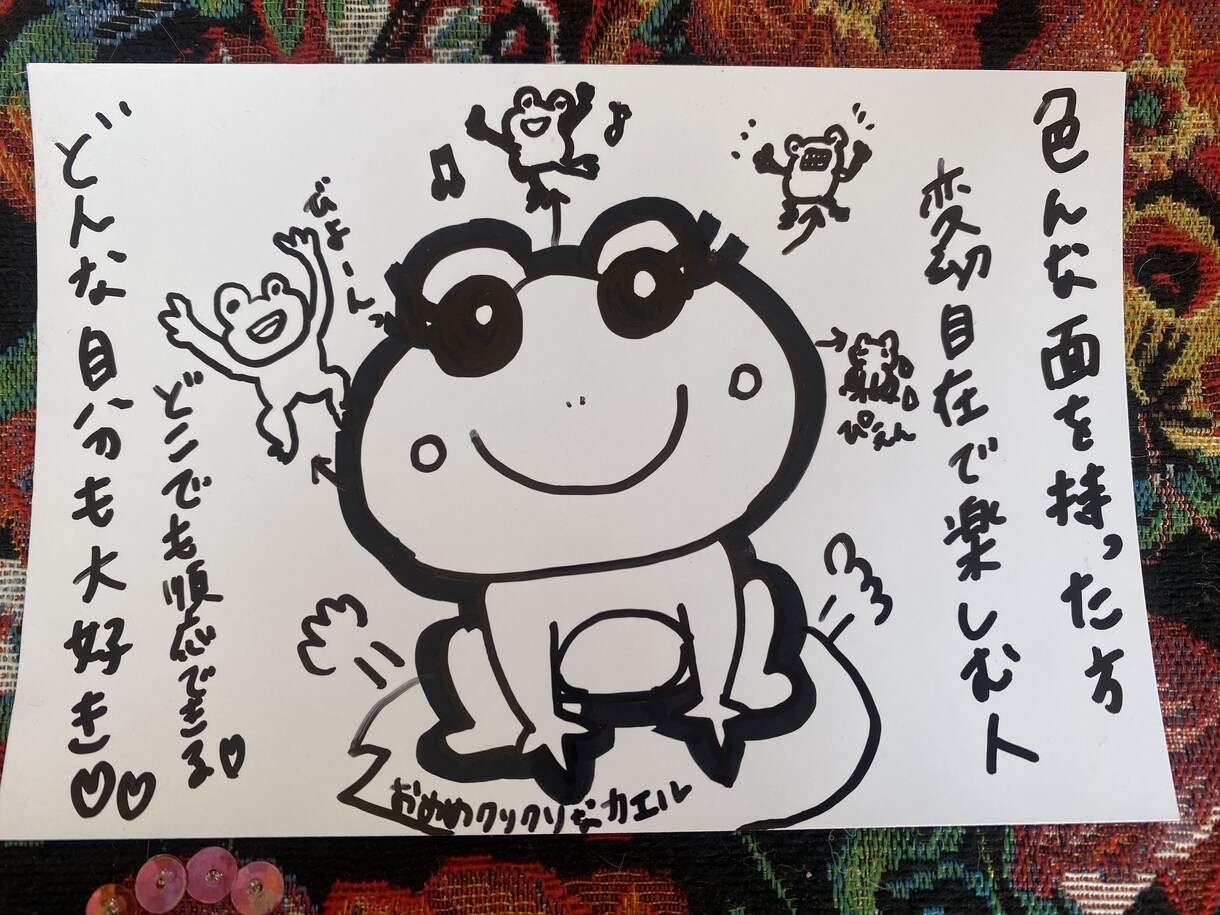 色んな面を持った方
変幻自在で楽しむ人
ぴえん
ぴょーんっ
どこでも順応できる♡
どんな自分も大好き♡♡
おめめクリクリなカエル